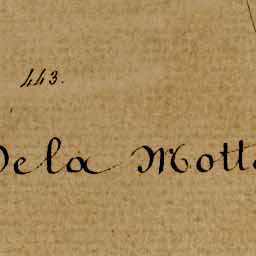 443.
De la Motte